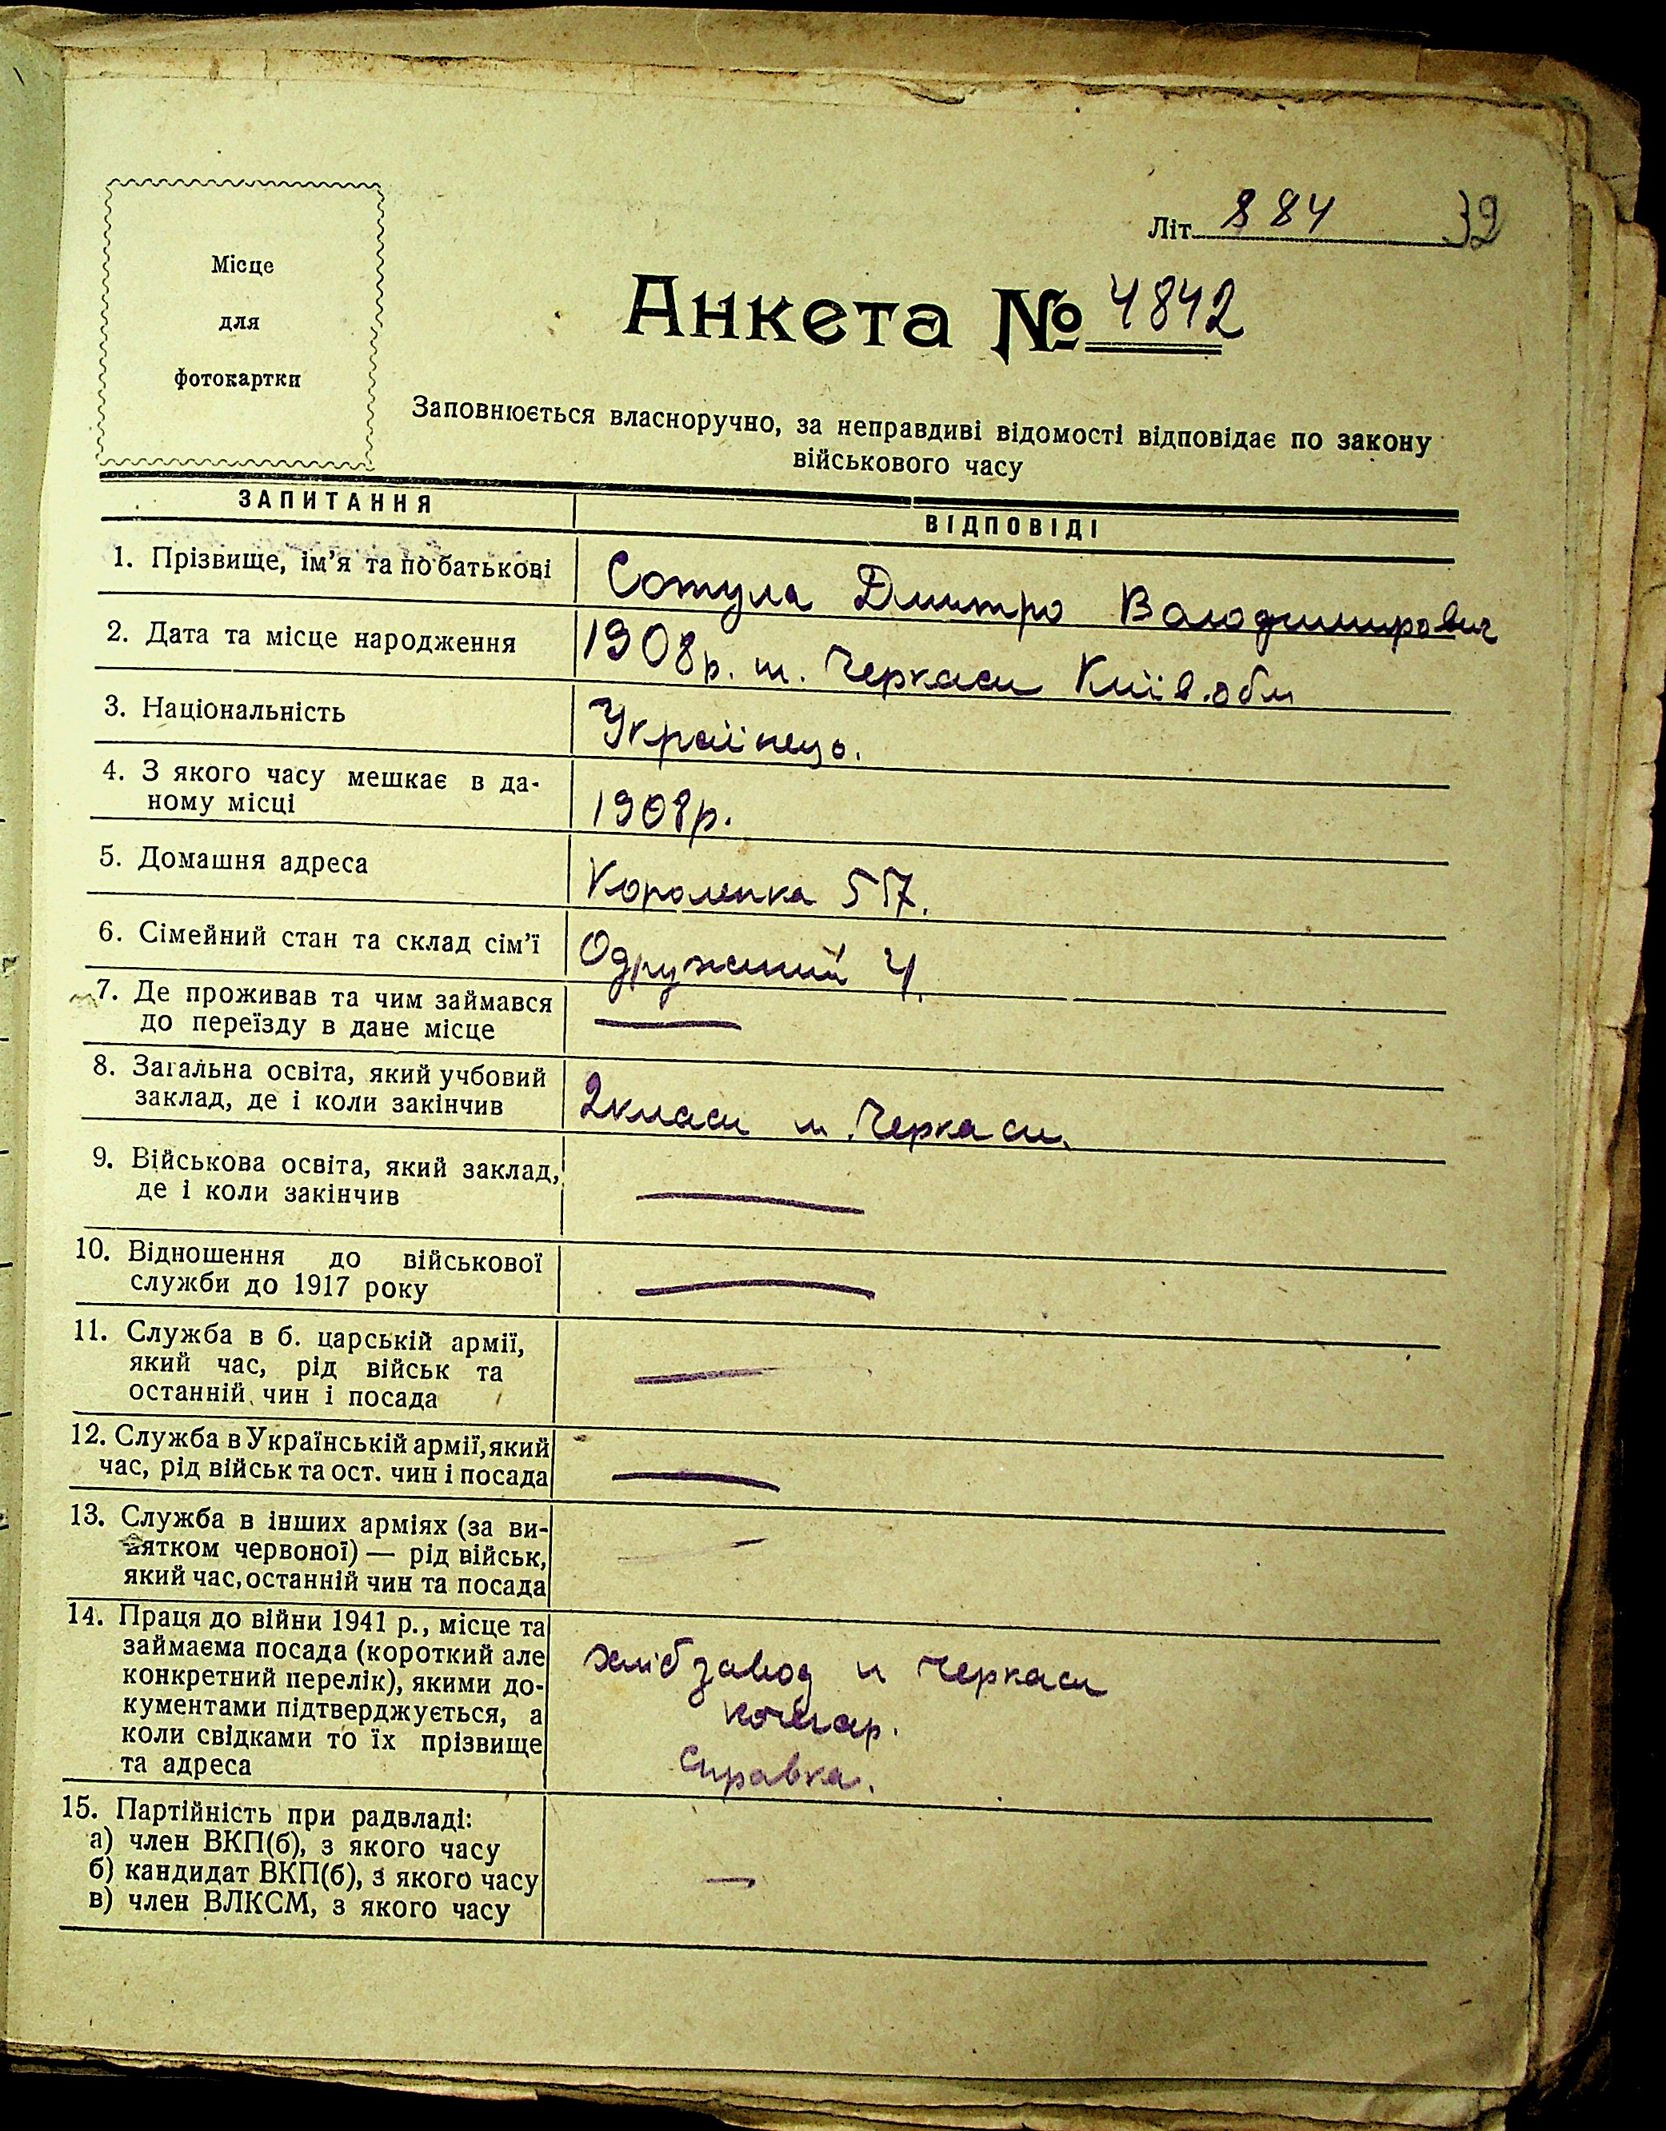 Літ. 884 32
Місце
для
фотокартки
Анкета № 4842
Заповнюється власноручно, за неправдиві відомості відповідає по закону
військового часу
ЗАПИТАННЯ ВІДПОВІДІ
1. Прізвище, ім'я та по батькові Сотула Дмитро Володимирович
2. Дата та місце народження 1908р. м. Черкаси Київ. обл
3. Національність Українець.
4. З якого часу мешкає в да-
ному місці 1908р.
5. Домашня адреса Короленка 57.
6. Сімейний стан та склад сім'ї Одружений 4.
7. Де проживав та чим займався
до переїзду в дане місце —
8. Загальна освіта, який учбовий
заклад, де і коли закінчив 2 класи м. Черкаси.
9. Військова освіта, який заклад,
де і коли закінчив —
10. Відношення до військової
служби до 1917 року —
11. Служба в б. царській армії,
який час, рід військ та
останній чин і посада —
12. Служба в Українській армії, який
час, рід військ та ост. чин і посада —
13. Служба в інших арміях (за ви-
нятком червоної) — рід військ,
який час, останній чин та посада —
14. Праця до війни 1941 р., місце та
займаєма посада (короткий але
конкретний перелік), якими до-
кументами підтверджується, а
коли свідками то їх прізвище
та адреса
хлібзавод м Черкаси
кочегар.
Справка.
15. Партійність при радвладі:
а) член ВКП(б), з якого часу
б) кандидат ВКП(б), з якого часу —
в) член ВЛКСМ, з якого часу